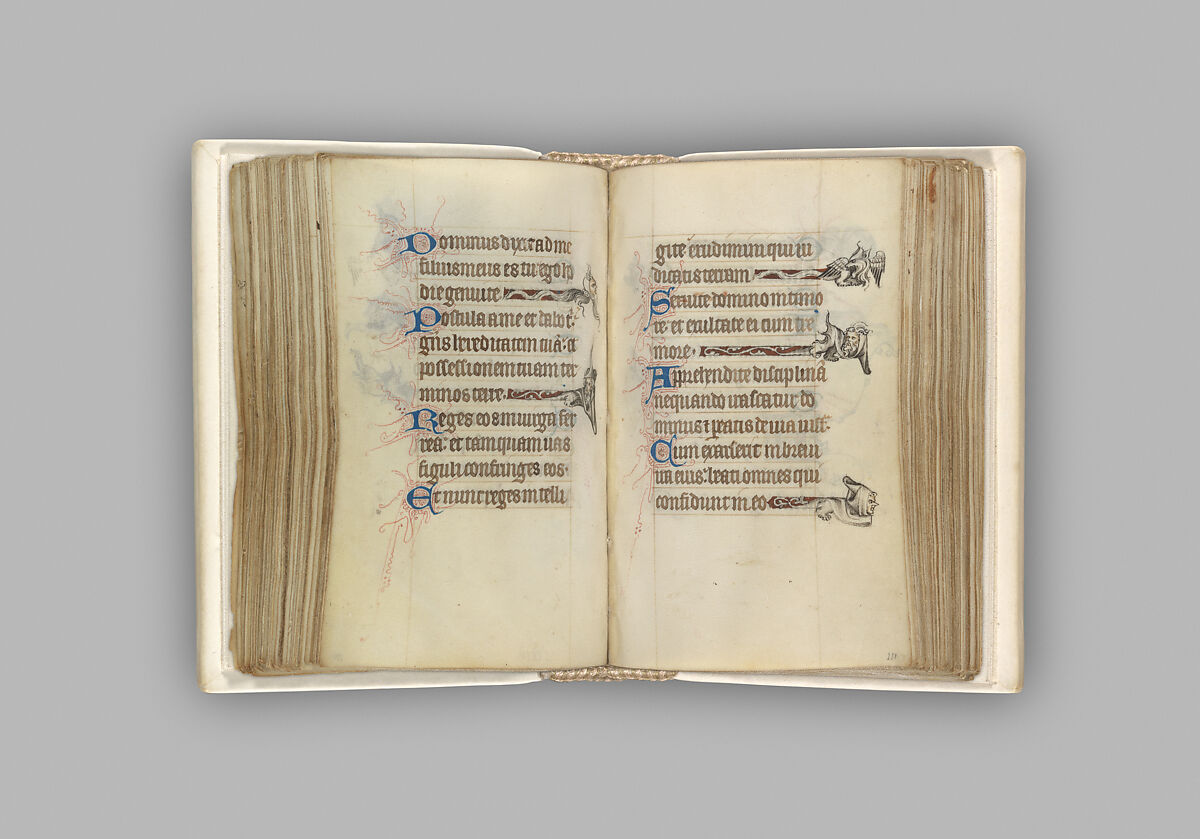 Dominus dixit ad me
filius meus es tu ego ho
die genui te
Postula a me et dabo t
gentes hereditatem tuā et
possessionem tuam ter
minos terre
Reges eos in uirga fer
rea et tamquam uas
figuli confringes eos
Et nunc reges intelli
gite erudimini qui iu
dicatis terram
Seruite domino in timo
re et exultate ei cum tre
more
Apprehendite disciplinā
nequando irascatur do
minus et peatis de uia iust
Cum exarserit in breui
ira eius beati omnes qui
confidunt in eo